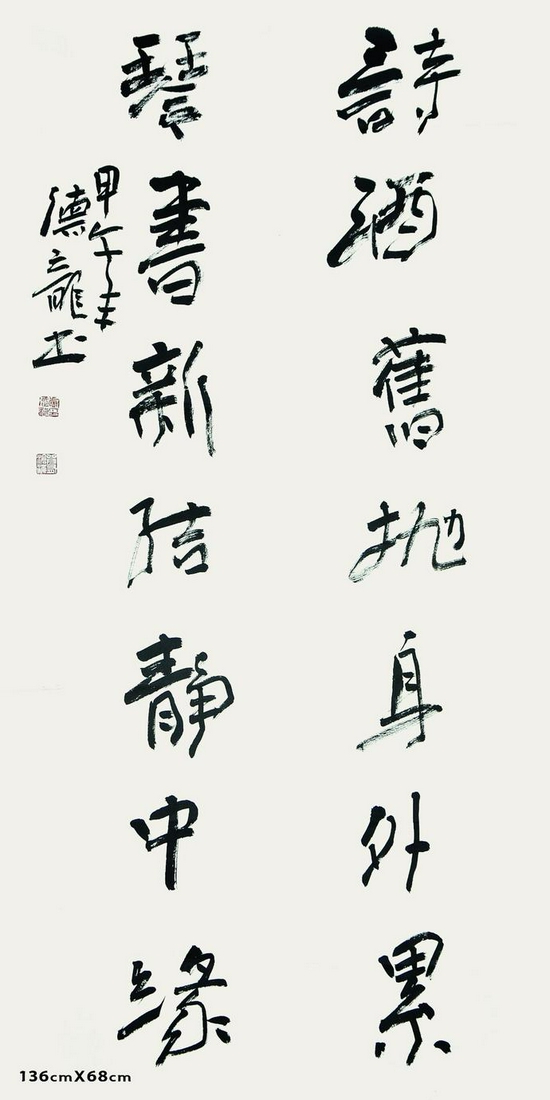 詩酒舊抛身外累
琴書新結靜中緣
甲午年
德龍書
136cmX68cm